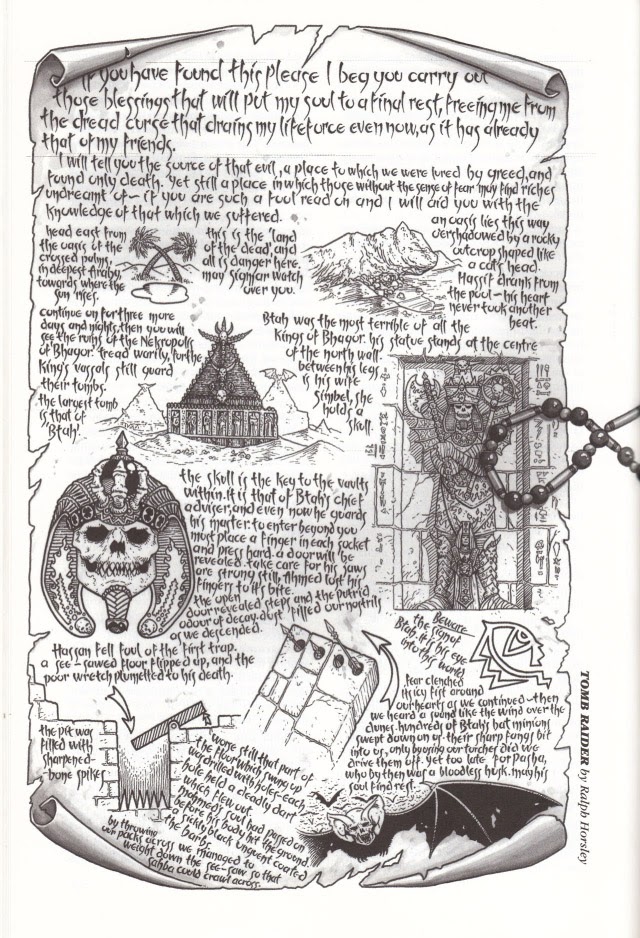 If you have found this please I beg you carry out
those blessings that will put my soul to a final rest, freeing me from
the dread curse that drains my lifeforce even now, as it has already
that of my friends.
I will tell you the source of that evil, a place to which we were lured by greed, and
found only death. Yet still a place in which those without the sense of fear may find riches
undreamt of – if you are such a fool read on and I will aid you with the
knowledge of that which we suffered.
head east from
the oasis of the
crossed palms,
in deepest Araby,
towards where the
sun rises.
this is the 'land
of the dead', and
all is danger here,
may Sigmar watch
over you.
an oasis lies this way
overshadowed by a rocky
outcrop shaped like
a cats head.
Hassif drank from
the pool – his heart
never took another
beat.
continue on for three more
days and nights, then you will
see the ruins of the Nekropolis
of Bhagor. tread warily, for the
King's vassals still guard
their tombs.
the largest tomb
is that of
'Btah'.
Btah was the most terrible of all the
Kings of Bhagor. his statue stands at the centre
of the north wall.
between his legs
is his wife
Simbel, she
holds a
skull.
the skull is the key to the vaults
within. It is that of Btah's chief
adviser, and even now he guards
his master. to enter beyond you
must place a finger in each socket
and press hard. a door will be
revealed. take care for his jaws
are strong still, Ahmed lost his
fingers to it's bite.
the open
door revealed steps and the putrid
odour of decay. dust filled our nostrils
as we descended.
Hassan fell foul of the first trap.
a see-sawed floor flipped up, and the
poor wretch plumetted to his death.
the pit was
filled with
sharpened
bone spikes
worse still that part of
the floor which swung up
was drilled with holes – each
hole held a deadly dart
which flew out.
Mohmed's soul had passed on
before his body hit the ground.
a sickly black unguent coated
the barbs.
by throwing
our packs across we managed to
weight down the see-saw so that
Sahba could crawl across.
Beware
the sign of
Btah, it is his eye
into this world.
fear clenched
its icy fist around
our hearts as we continued – then
we heard a sound like the wind over the
dunes. hundreds of Btah's bat minions
swept down on us – their sharp fangs bit
into us, only by using our torches did we
drive them off. Yet too late for Pasha,
who by then was a bloodless husk. may his
soul find rest.
TOMB RAIDER by Ralph Horsley